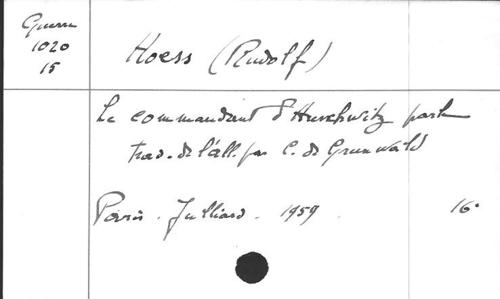 Guerre
1020
15
Hoess (Rudolf)
Le commandant d'Auschwitz parle
trad. de l'all. par C. de Grunwald
Paris. Julliard. 1959 16°